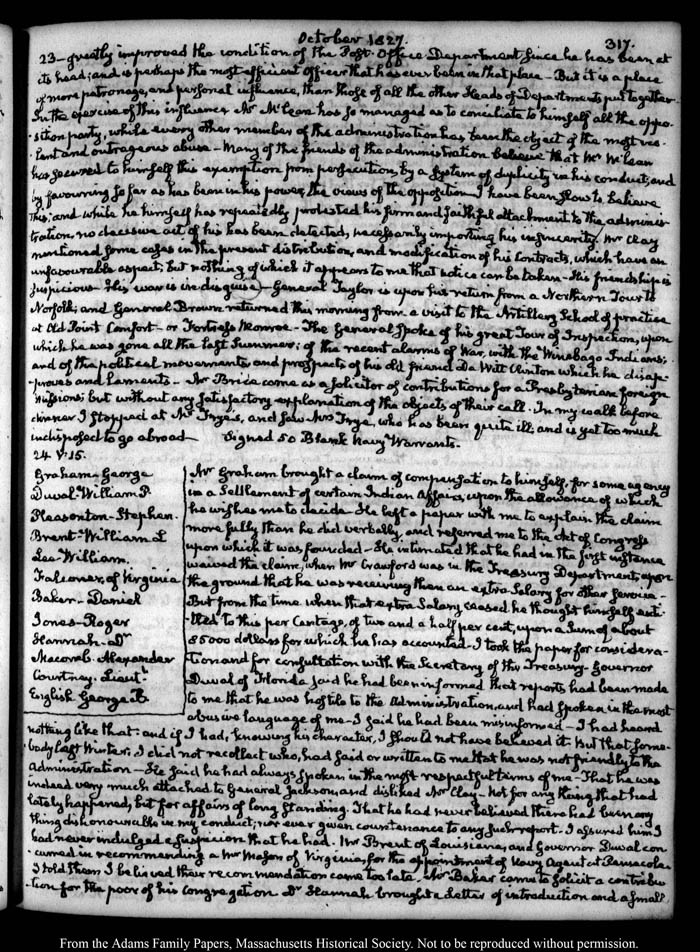 October 1827.
317.
23- greatly improved the condition of the Post-Office Department since he has been at
its head; and is perhaps the most efficient officer that has ever been in that place - But it is a place
of more patronage, and personal influence, than those of all the other Heads of Departments put together
In the exercise of this influence Mr McLean has so managed as to conciliate to himself all the oppo-
-sition party, while every other member of the administration has been the object of the most vio-
-lent and outrageous abuse - Many of the friends of the administration believe that Mr McLean
has secured to himself this exemption from persecution, by a system of duplicity in his conduct, and
by favouring so far as has been in his power, the views of the opposition. I have been slow to believe
this; and while he himself has repeatedly protested his firm and faithful attachment to the adminis-
tration, no decisive act of his has been detected, necessarily importing his insincerity. Mr Clay
mentioned some cases in the present distribution, and modification of his contracts, which have an
unfavourable aspect; but nothing of which it appears to me that notice can be taken - His friendship is
suspicious - His war is in disguise - General Taylor is upon his return from a Northern Tour to
Norfolk; and General Brown returned this morning from a visit to the Artillery School of practice
at Old Point Comfort - or Fortress Monroe - The General spoke of his great Tour of Inspection, upon
which he was gone all the last Summer; of the recent alarms of War, with the Winebago Indians;
and of the political movements and prospects of his old friend De Witt Clinton which he disap-
-proves and laments - Mr Brice came as a solicitor of contributions for a Presbyterian foreign
missions; but without any satisfactory explanation of the objects of their call. In my walk before
dinner I stopped at Mr Frye's, and saw Mrs Frye, who has been quite ill, and is yet too much
indisposed to go abroad - Signed 50 Blank Navy Warrants.
24 V:15.
Graham- George
Duval- William P.
Pleasonton- Stephen.
Brent- William L
Lee- William.
Falconer, of Virginia
Baker- Daniel
Jones- Roger
Hannah- Dr
Macomb- Alexander
Courtney. Lieut.
English George B.
Mr Graham brought a claim of compensation to himself, for some agency
in a Settlement of certain Indian Affairs, upon the allowance of which
he wishes me to decide - He left a paper with me to explain the claim
more fully than he did verbally, and referred me to the Act of Congress
upon which it was founded - He intimated that he had in the first instance
waived the claim, when Mr Crawford was in the Treasury Department, upon
the ground that he was receiving then an extra Salary for other service -
But from the time when that extra Salary ceased he thought himself enti-
tled to this per Centage, of two and a half per cent, upon a sum of about
85000 dollars for which he has accounted - I took the paper for considera-
tion and for consultation with the Secretary of the Treasury - Governor
Duval of Florida said he had been informed that reports had been made
to me that he was hostile to the Administration, and had spoken in the most
abusive language of me - I said he had been misinformed - I had heard
nothing like that: and if I had, knowing his character, I should not have believed it. But that some-
-body last Winter, I did not recollect who, had said or written to me that he was not friendly to the
Administration - He said he had always spoken in the most respectful terms of me - That he was
indeed very much attached to General Jackson, and disliked Mr Clay - not for any thing that had
lately happened, but for affairs of long standing. That he had never believed there had been any
thing dishonourable in my conduct; nor ever given countenance to any such report. I assured him I
had never indulged a suspicion that he had. Mr Brent of Louisiana, and Governor Duval con
-curred in recommending a Mr Mason of Virginia, for the appointment of Navy Agent at Pensacola
I told them I believed their recommendation came too late. Mr Baker came to solicit a contribu
-tion for the poor of his congregation Dr Hannah brought a letter of introduction and a small
From the Adams Family Papers, Massachusetts Historical Society. Not to be reproduced without permission.